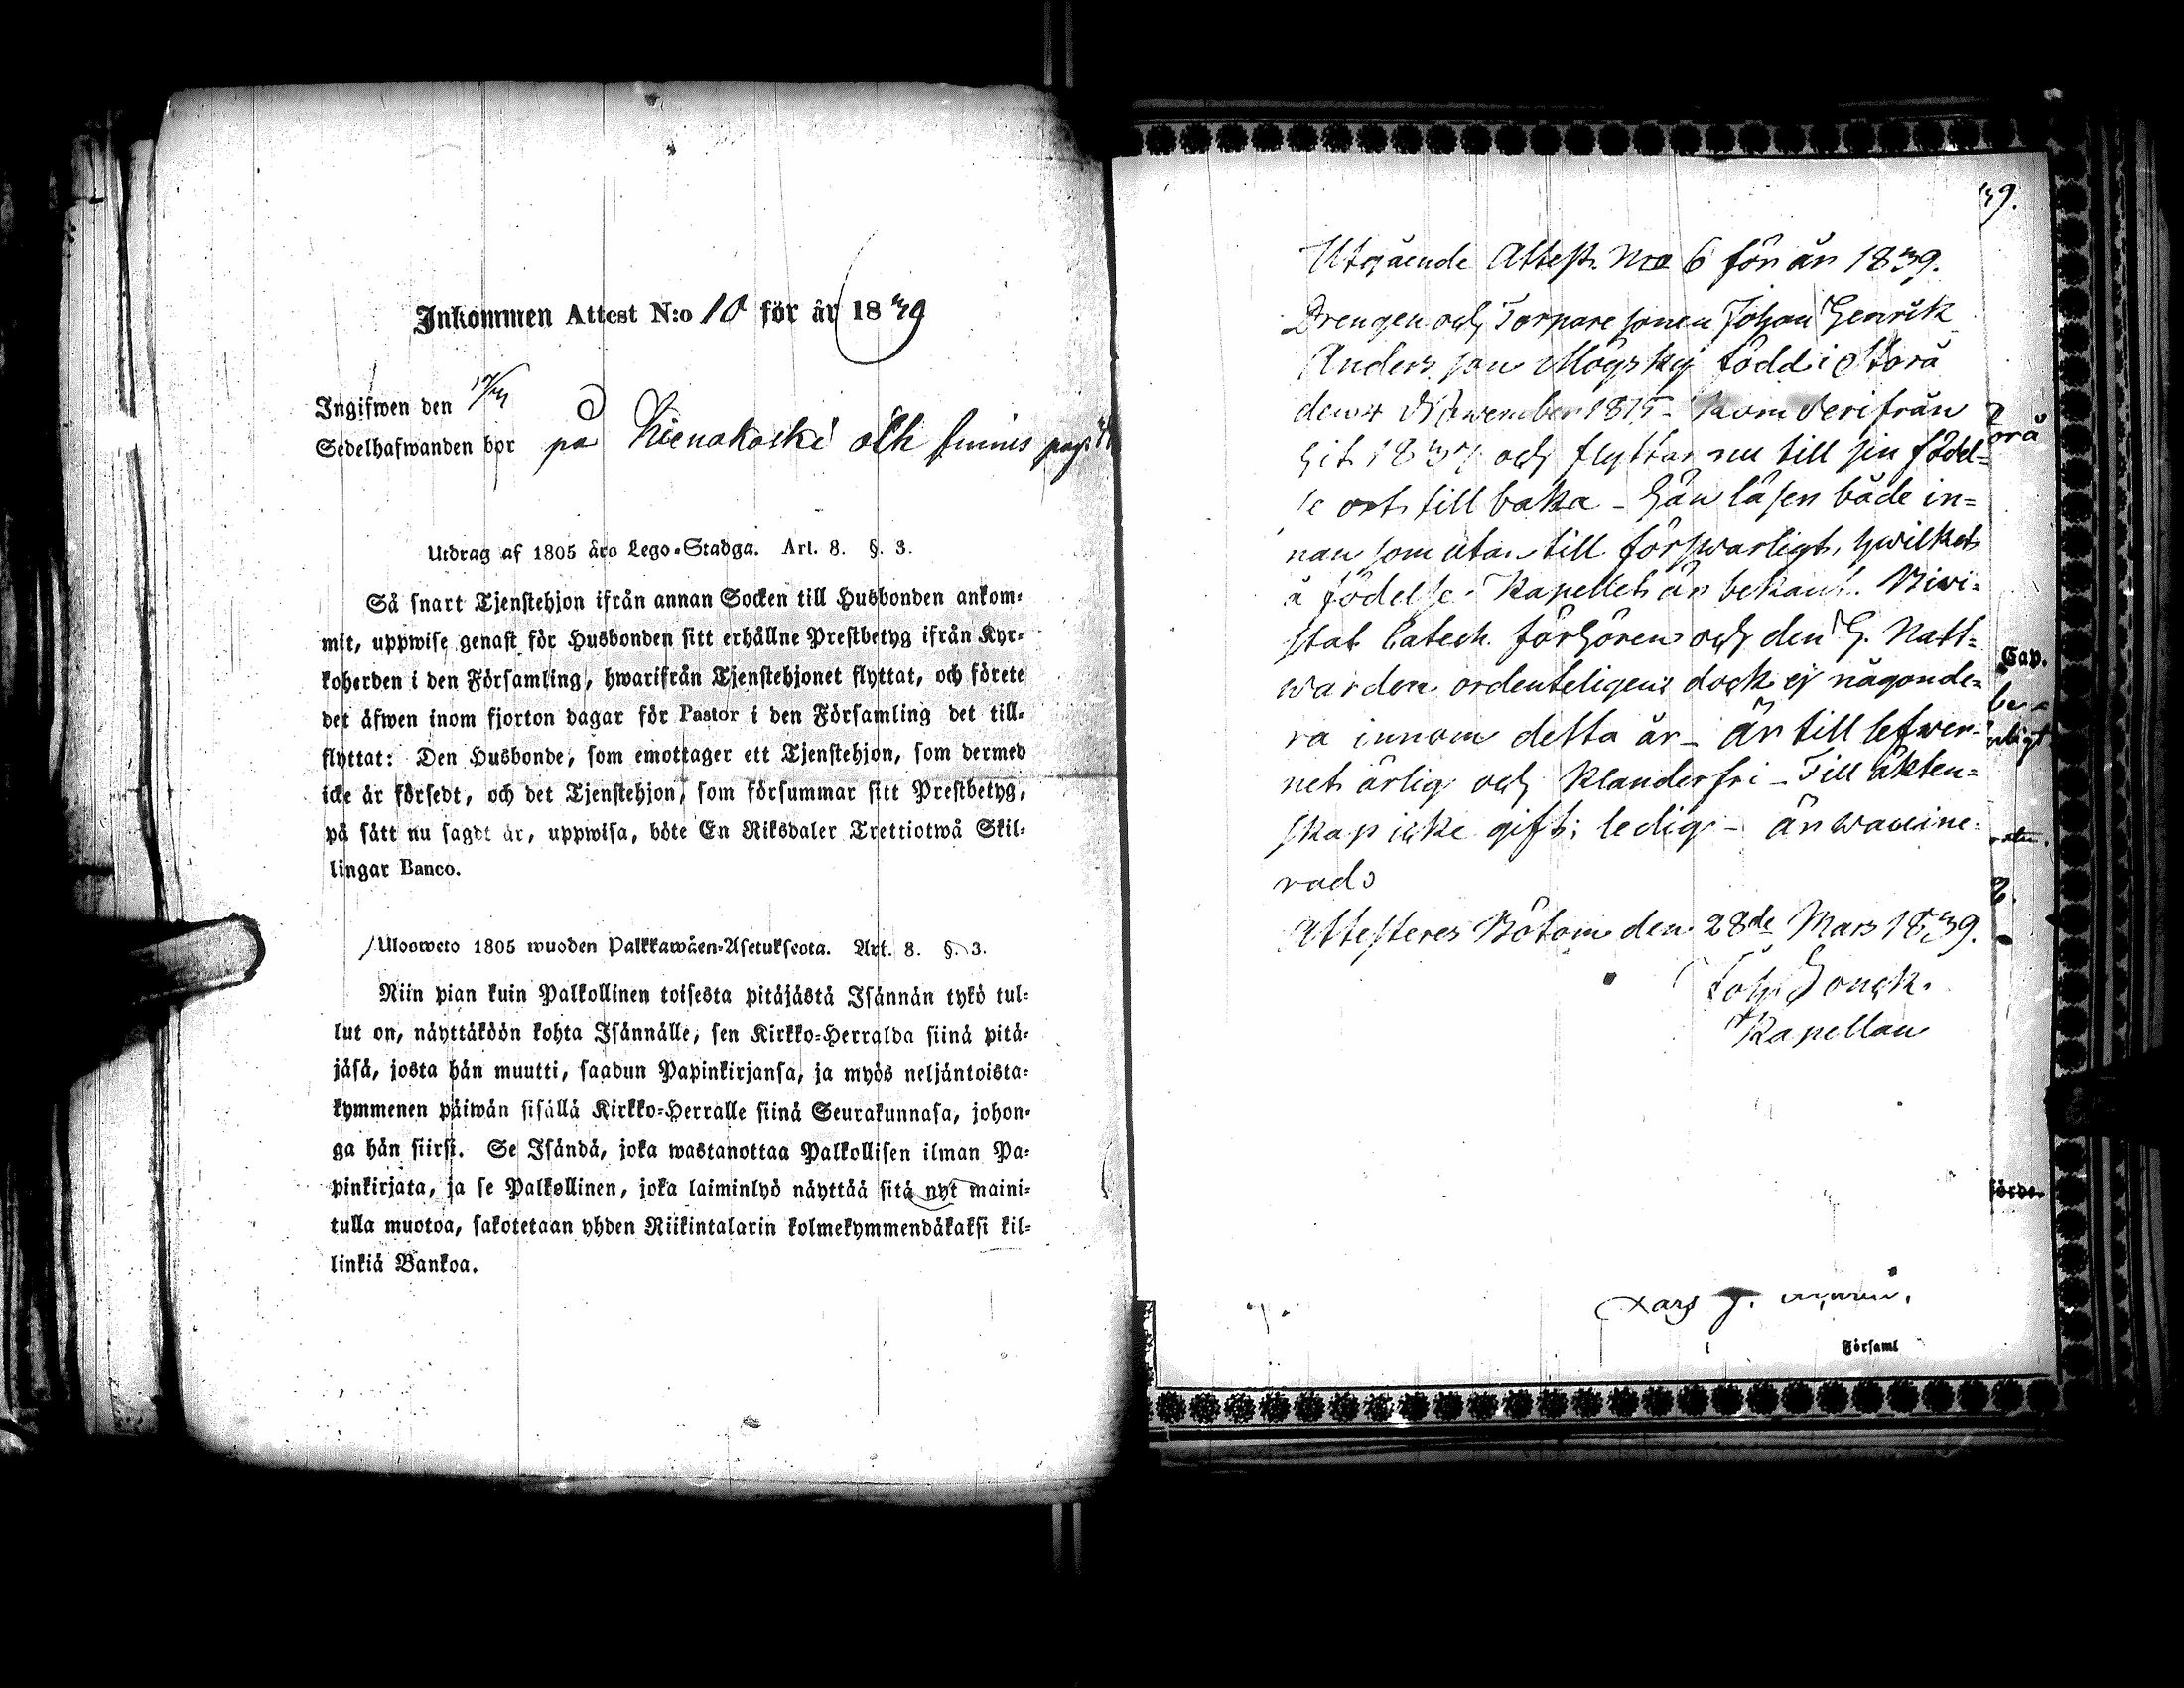 Inkommen Attest N:o 10 för år 1839
Ingifwen den
Sedelhafwanden bor på och finnes pag.
Utdrag af 1805 års Lego-Stadga. Art. 8. §. 3.
Så snart Tjenstehjon ifrån annan Socken till Husbonden ankom-
mit, uppwise genast för Husbonden sitt erhållne Prestbetyg ifrån Kyr-
koherden i den Församling, hwarifrån Tjenstehjonet flyttat, och förete
det äfwen inom fjorton dagar för Pastor i den Församling det till-
flyttat: Den Husbonde, som emottager ett Tjenstehjon, som dermed
icke är försedt, och det Tjenstehjon, som försummar sitt Prestbetyg,
på sätt nu sagdt är, uppwisa, böte En Riksdaler Trettiotwå Skil-
lingar Banco.
Uloswето 1805 wuoden Palkkawäen-Asetuksesta. Art. 8. §. 3.
Niin pian kuin Palkollinen toisesta pitäjästä Isännän tykö tul-
lut on, näyttäköön kohta Isännälle, sen Kirkko-Herralda siinä pitä-
jäsä, josta hän muutti, saadun Papinkirjansa, ja myös neljäntoista-
kymmenen päiwän sisällä Kirkko-Herralle siinä Seurakunnasa, johon-
ga hän siirsi. Se Isändä, joka wastanottaa Palkollisen ilman Pa-
pinkirjata, ja se Palkollinen, joka laiminlyö näyttää sitä nyt maini-
tulla muotoa, sakotetaan yhden Riikintalarin kolmekymmendäkaksi kil-
linkiä Bankoa.
39.
Utgående Attest. Nro 6 för år 1839.
Drengen och Torpare sonen Johan Henrik
Anders son född i Storå
den 4 November 1815 - kom derifrån
hit 1837 och flyttar nu till sin födel=
se ort till baka - Han läser både in=
nan som utan till förswarligt, hwilket
å födelse Kapellet är bekant. Biwi=
stat Catech. förhören och den H. Natt=
warden ordenteligen dock ej någonde=
ra innom detta år - är till lefwer=
net ärlig och klanderfri - Till äkten=
skap icke gift; ledig - är waccine=
rad
Attesteres Bötom den 28de Mars 1839.
Joh. Honck.
Kapellan
orå
Cap.
be=
förde-
Församl